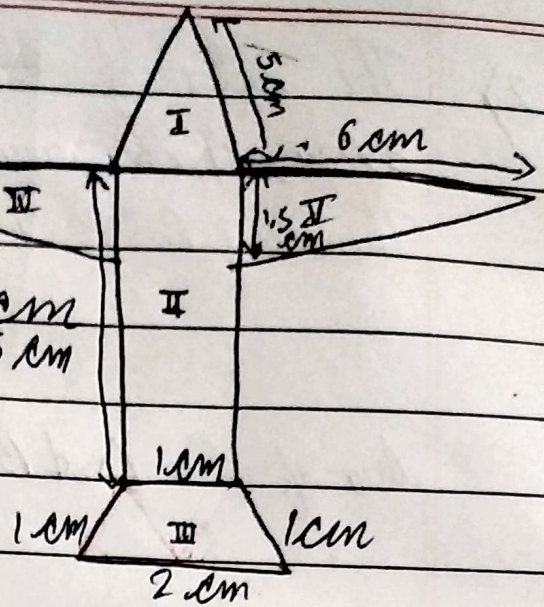 5 cm
I
6 cm
IV
1.5 V
cm
II
cm
cm
1 cm
1 cm
III
1 cm
2 cm